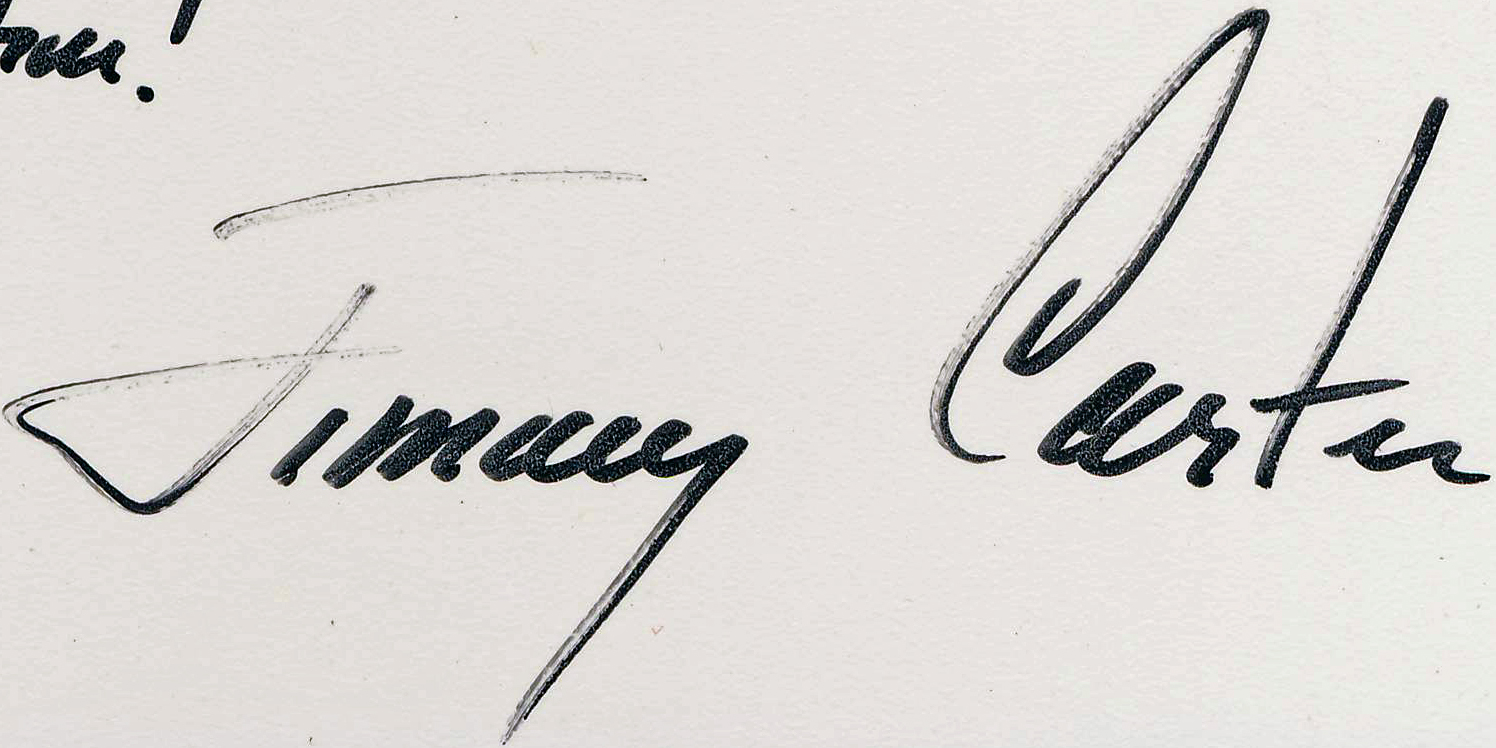 Jimmy Carter